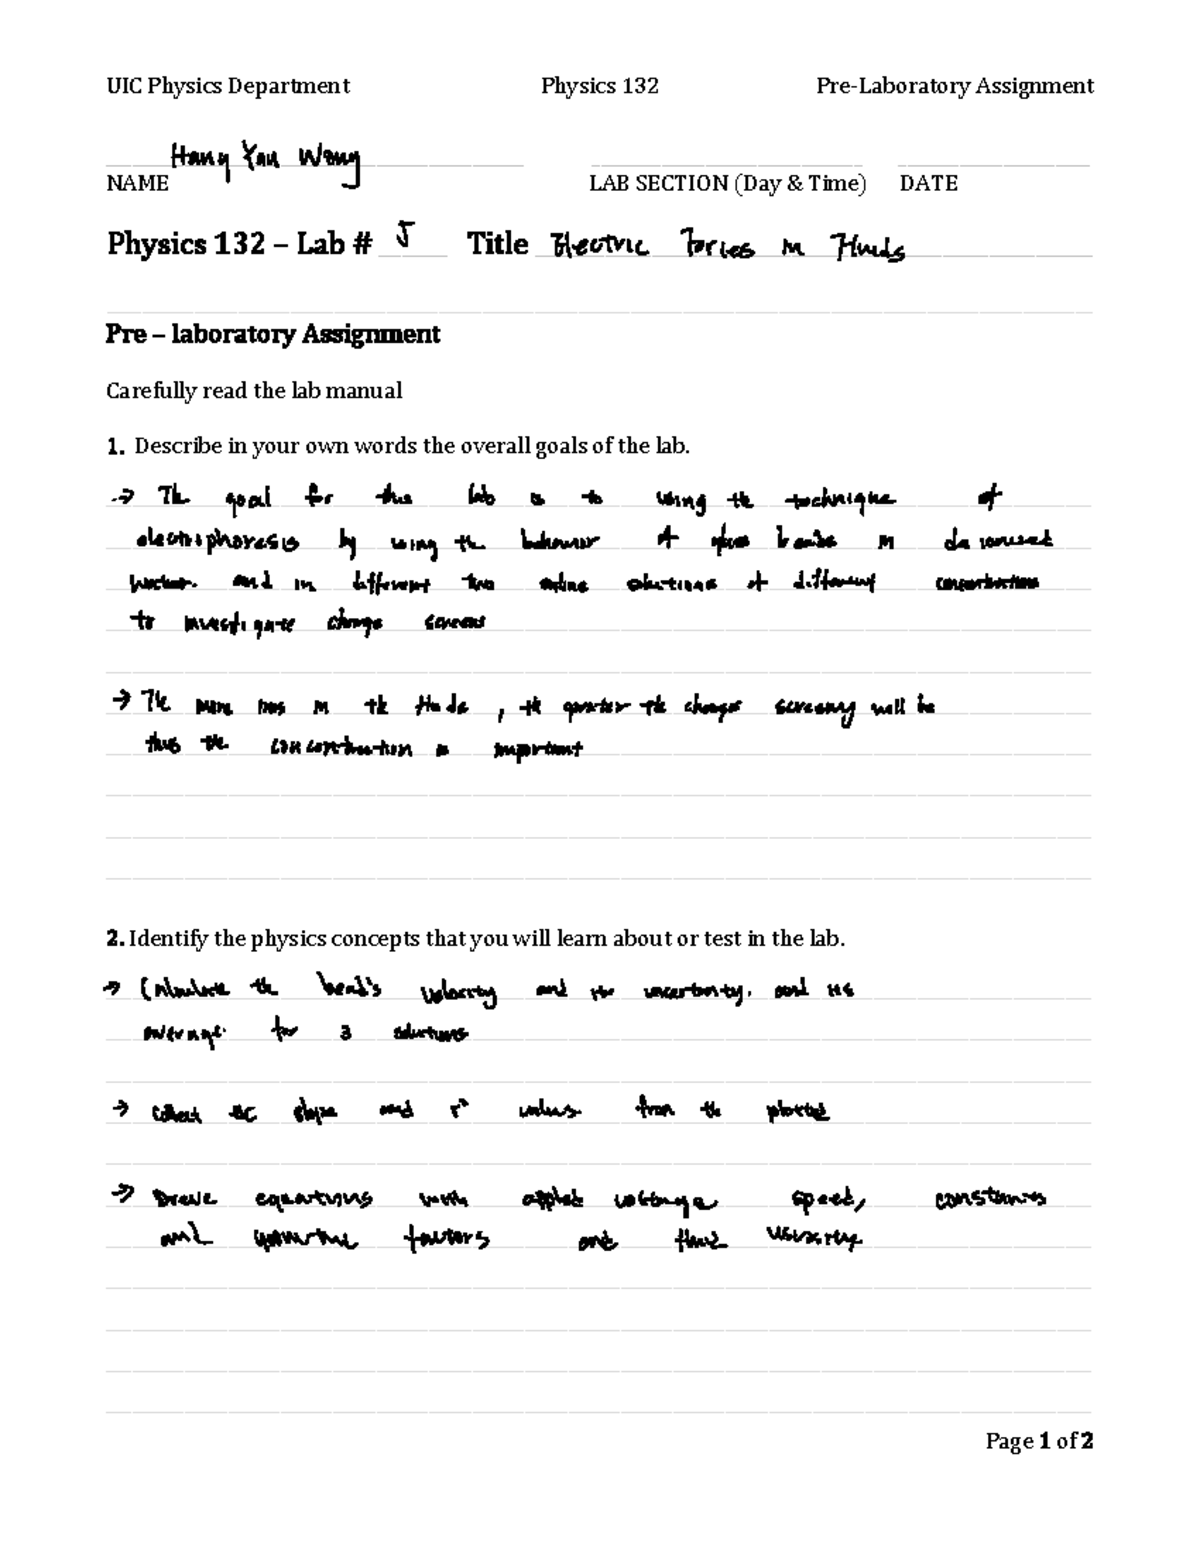 UIC Physics Department Physics 132 Pre-Laboratory Assignment
Hang Yau Wong
NAME LAB SECTION (Day & Time) DATE
Physics 132 – Lab # 5 Title Electric Forces in Fluids
Pre – laboratory Assignment
Carefully read the lab manual
1. Describe in your own words the overall goals of the lab.
→ The goal for this lab is to using the technique of
electrophoresis by using the behaviour of glass beads in de ionised
water. and in different two saline solutions of different concentrations
to investigate charge screens
→ The more ions in the fluids, the greater the charges screening will be
thus the concentration is important
2. Identify the physics concepts that you will learn about or test in the lab.
→ Calculate the bead's velocity and its uncertainty. and its
average for 3 solutions
→ collect slope and r² values from the plotted
→ Derive equations with applied voltage speed, constants
and geometric factors and fluid viscosity
Page 1 of 2